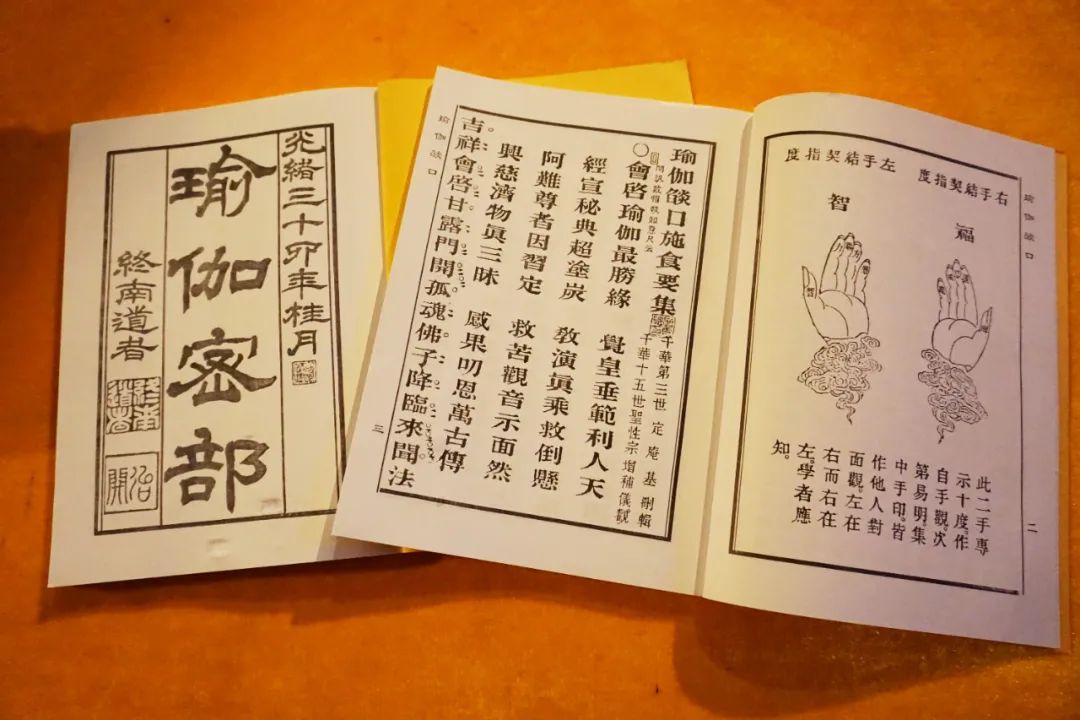 光緒三十卯年桂月
瑜伽密部
終南道者
瑜伽燄口
右手結契指度
福
左手結契指度
智
此二手專
示十度。作
自手觀。次
第易明。集
中手印。皆
作他人對
面觀。左在
右而右在
左。學者應
知。
二
瑜伽燄口施食要集
千華第三世 定 庵 基 刪輯
千華十五世聖性宗 增補儀觀
會啓瑜伽最勝緣 覺皇垂範利人天
經宣秘典超塗炭 教演眞乘救倒懸
阿難尊者因習定 救苦觀音示面然
興慈濟物眞三昧 感果叨恩萬古傳
吉祥會啓甘露門開孤魂佛子降臨來聞法
瑜伽燄口
三